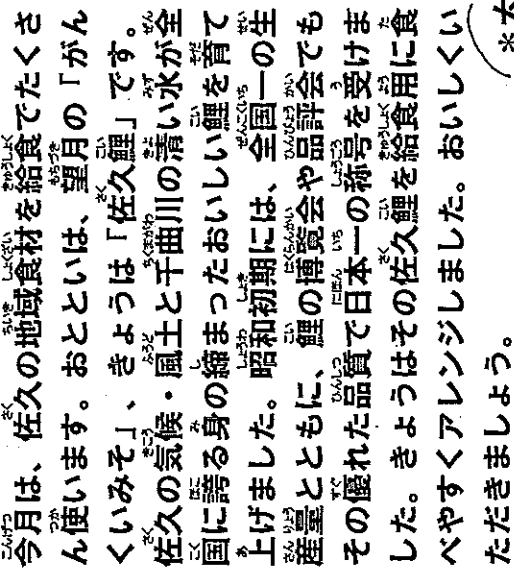 今月は、佐久の地域食材を給食でたくさ
ん使います。おとといは、望月の「がん
くいみそ」、きょうは「佐久鯉」です。
佐久の気候・風土と千曲川の清い水が全
国に誇る身の締まったおいしい鯉を育て
上げました。昭和初期には、全国一の生
産量とともに、鯉の博覧会や品評会でも
その優れた品質で日本一の称号を受けま
した。きょうはその佐久鯉を給食用に食
べやすくアレンジしました。おいしくい
ただきましょう。